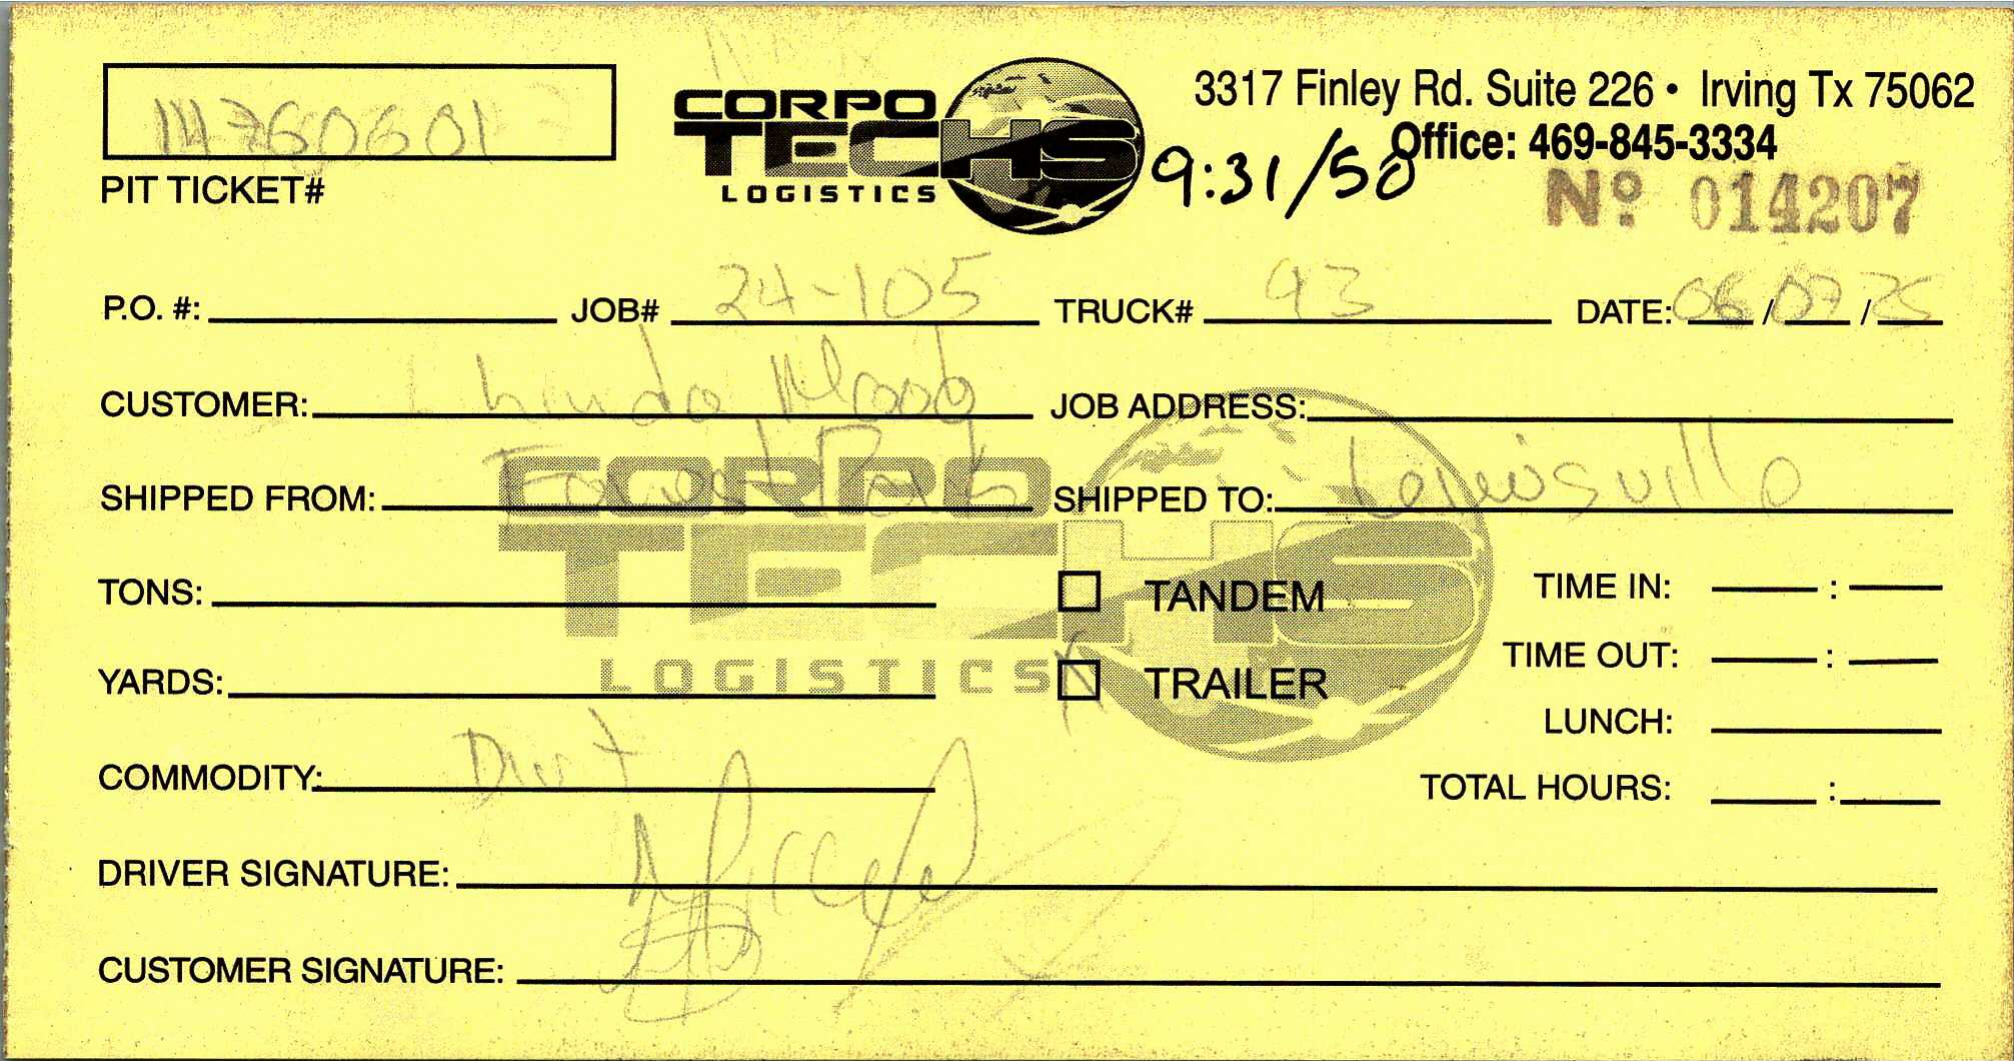 14760601
PIT TICKET#
CORPO
TECHS
LOGISTICS
3317 Finley Rd. Suite 226 • Irving Tx 75062
Office: 469-845-3334
9:31/50
Nº. 014207
P.O. #: JOB# 24-105 TRUCK# 93 DATE: 06/07/25
CUSTOMER: JOB ADDRESS:
SHIPPED FROM: Forest Park SHIPPED TO: Lewisville
CORPO
TECHS
LOGISTICS
TONS: TANDEM TIME IN: :
YARDS: X TRAILER TIME OUT: :
LUNCH:
COMMODITY: Dirt TOTAL HOURS: :
DRIVER SIGNATURE:
CUSTOMER SIGNATURE: